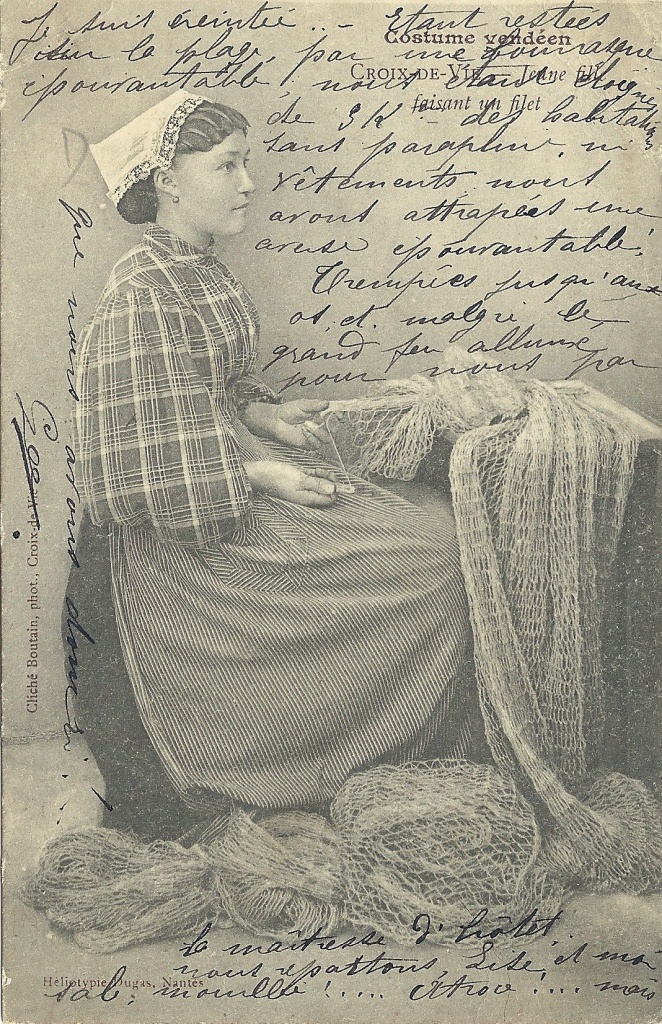 Je suis éreintée... - Etant restées
sur la plage, par une bourrasque
épouvantable, nous étant éloignées
de 3 K - des habitations
sans parapluie, ni
vêtements nous
avons attrapées une
averse épouvantable.
Trempées jusqu'aux
os et malgré le
grand feu allumé
pour nous par
la maîtresse d'hôtel
nous repartons, Lise, et moi
sab. mouillé !.... Atroce !... mais
que nous avons dormi !
Costume vendéen
CROIX-DE-VIE — Jeune fille
faisant un filet
Cliché Boutain, phot., Croix-de-Vie
Héliotypie Dugas, Nantes